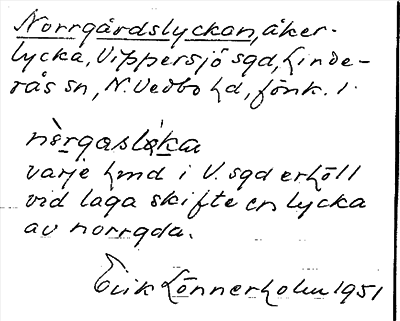 Norrgårdslyckan, åker-
lycka, Vippersjö sgd, Linde-
rås sn, N. Vedbo hd, Jönk. l.
varje hmd i V. sgd erhöll
vid laga skifte en lycka
av norrgda.
Erik Lönnerholm 1951